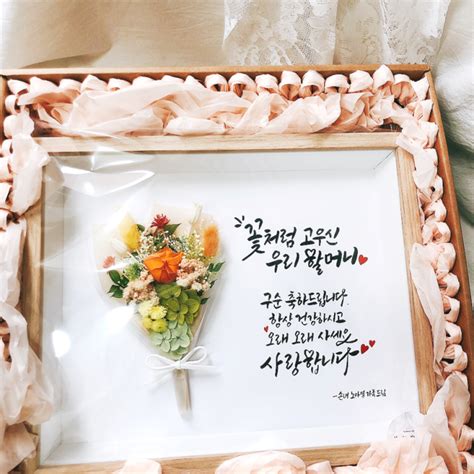 꽃처럼 고우신
우리 할머니
구순 축하드립니다
항상 건강하시고
오래 오래 사세요
사랑합니다